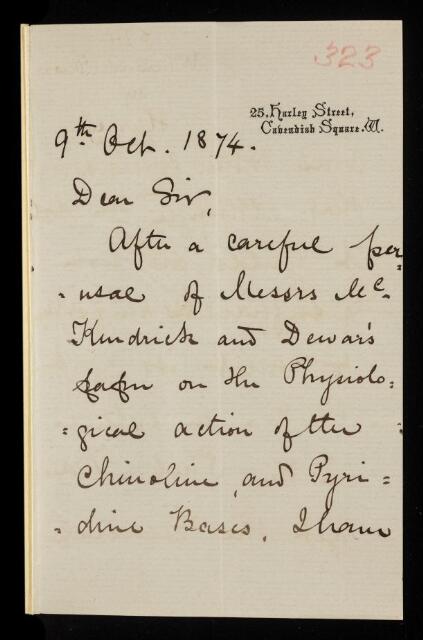 323
25, Harley Street,
Cavendish Square. W.
9th Oct. 1874.
Dear Sir,
After a careful per-
-usal of Messrs Mc-
Kendrick and Dewar's
paper on the Physiolo=
=gical action of the
Chinoline, and Pyri=
-dine Bases, I have